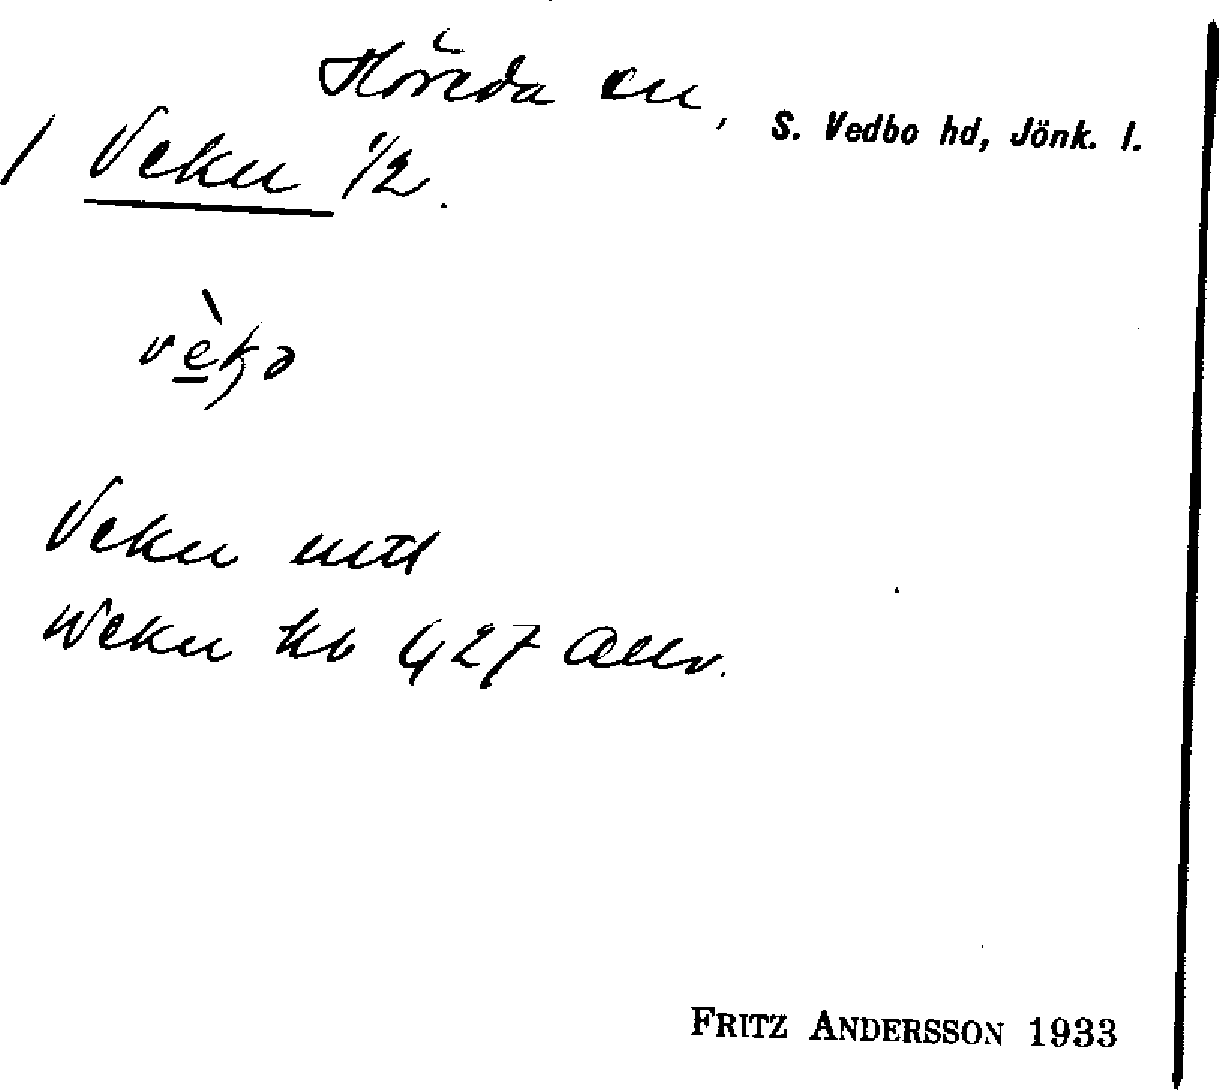 Höreda sn, S. Vedbo hd, Jönk. l.
/ Veku 1/2.
vèkə
Veku mtl
Weku kb 427 Allv.
FRITZ ANDERSSON 1933